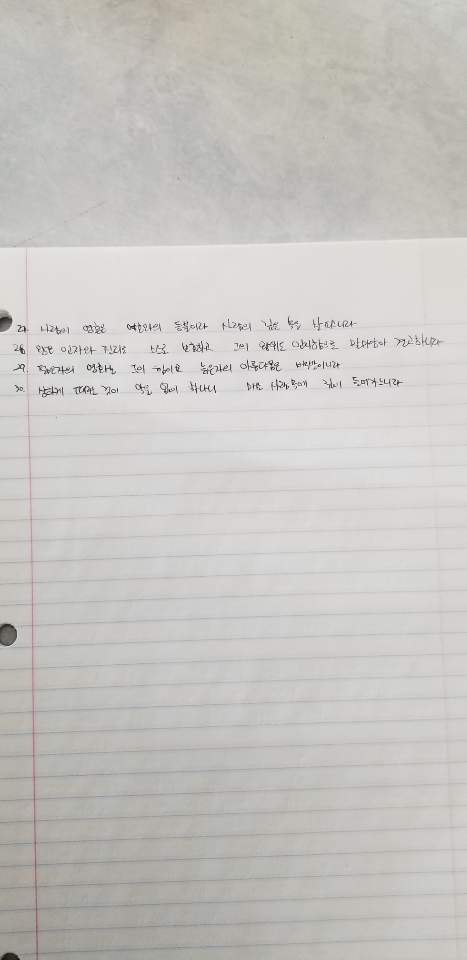 27. 사람의 영혼은 여호와의 등불이라 사람의 깊은 속을
28. 왕은 인자와 진리로 스스로 보호하고 그의 왕위도 인자함으로 말미암아 견고하니라
29. 젊은자의 영화는 그의 힘이요 늙은자의 아름다움은 백발이니라
30. 상하게 때리는 것이 악을 없이 하나니 매는 사람 속에 깊이 들어가느니라